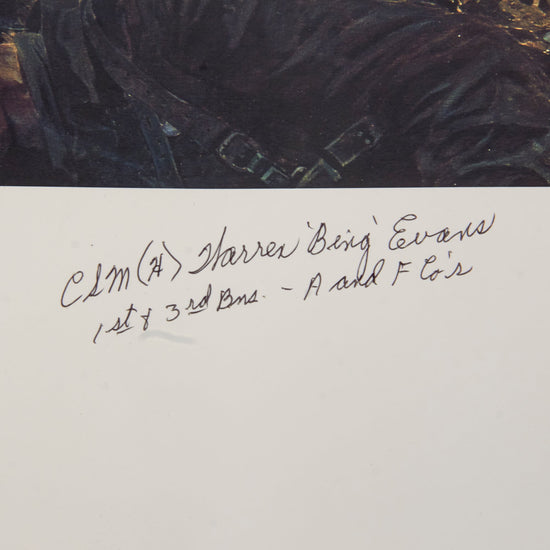 CSM (H) Warren 'Bing' Evans
1st & 3rd Bns. - A and F Co's